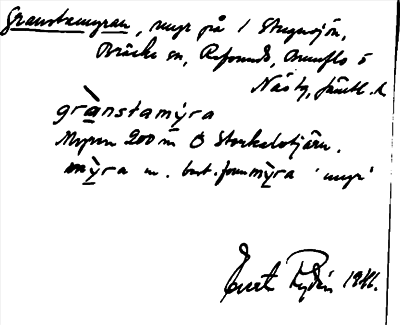 Granstamyran, myr på 1 Stugusjön,
Bräcke sn, Refsunds, Brunflo o
Näs tg, Jämtl. l.
grànstamýra
Myren 200 m Ö Storkalotjärn.
mỳra m. best. form mỳra 'myr'
Curt Rydén 1946.